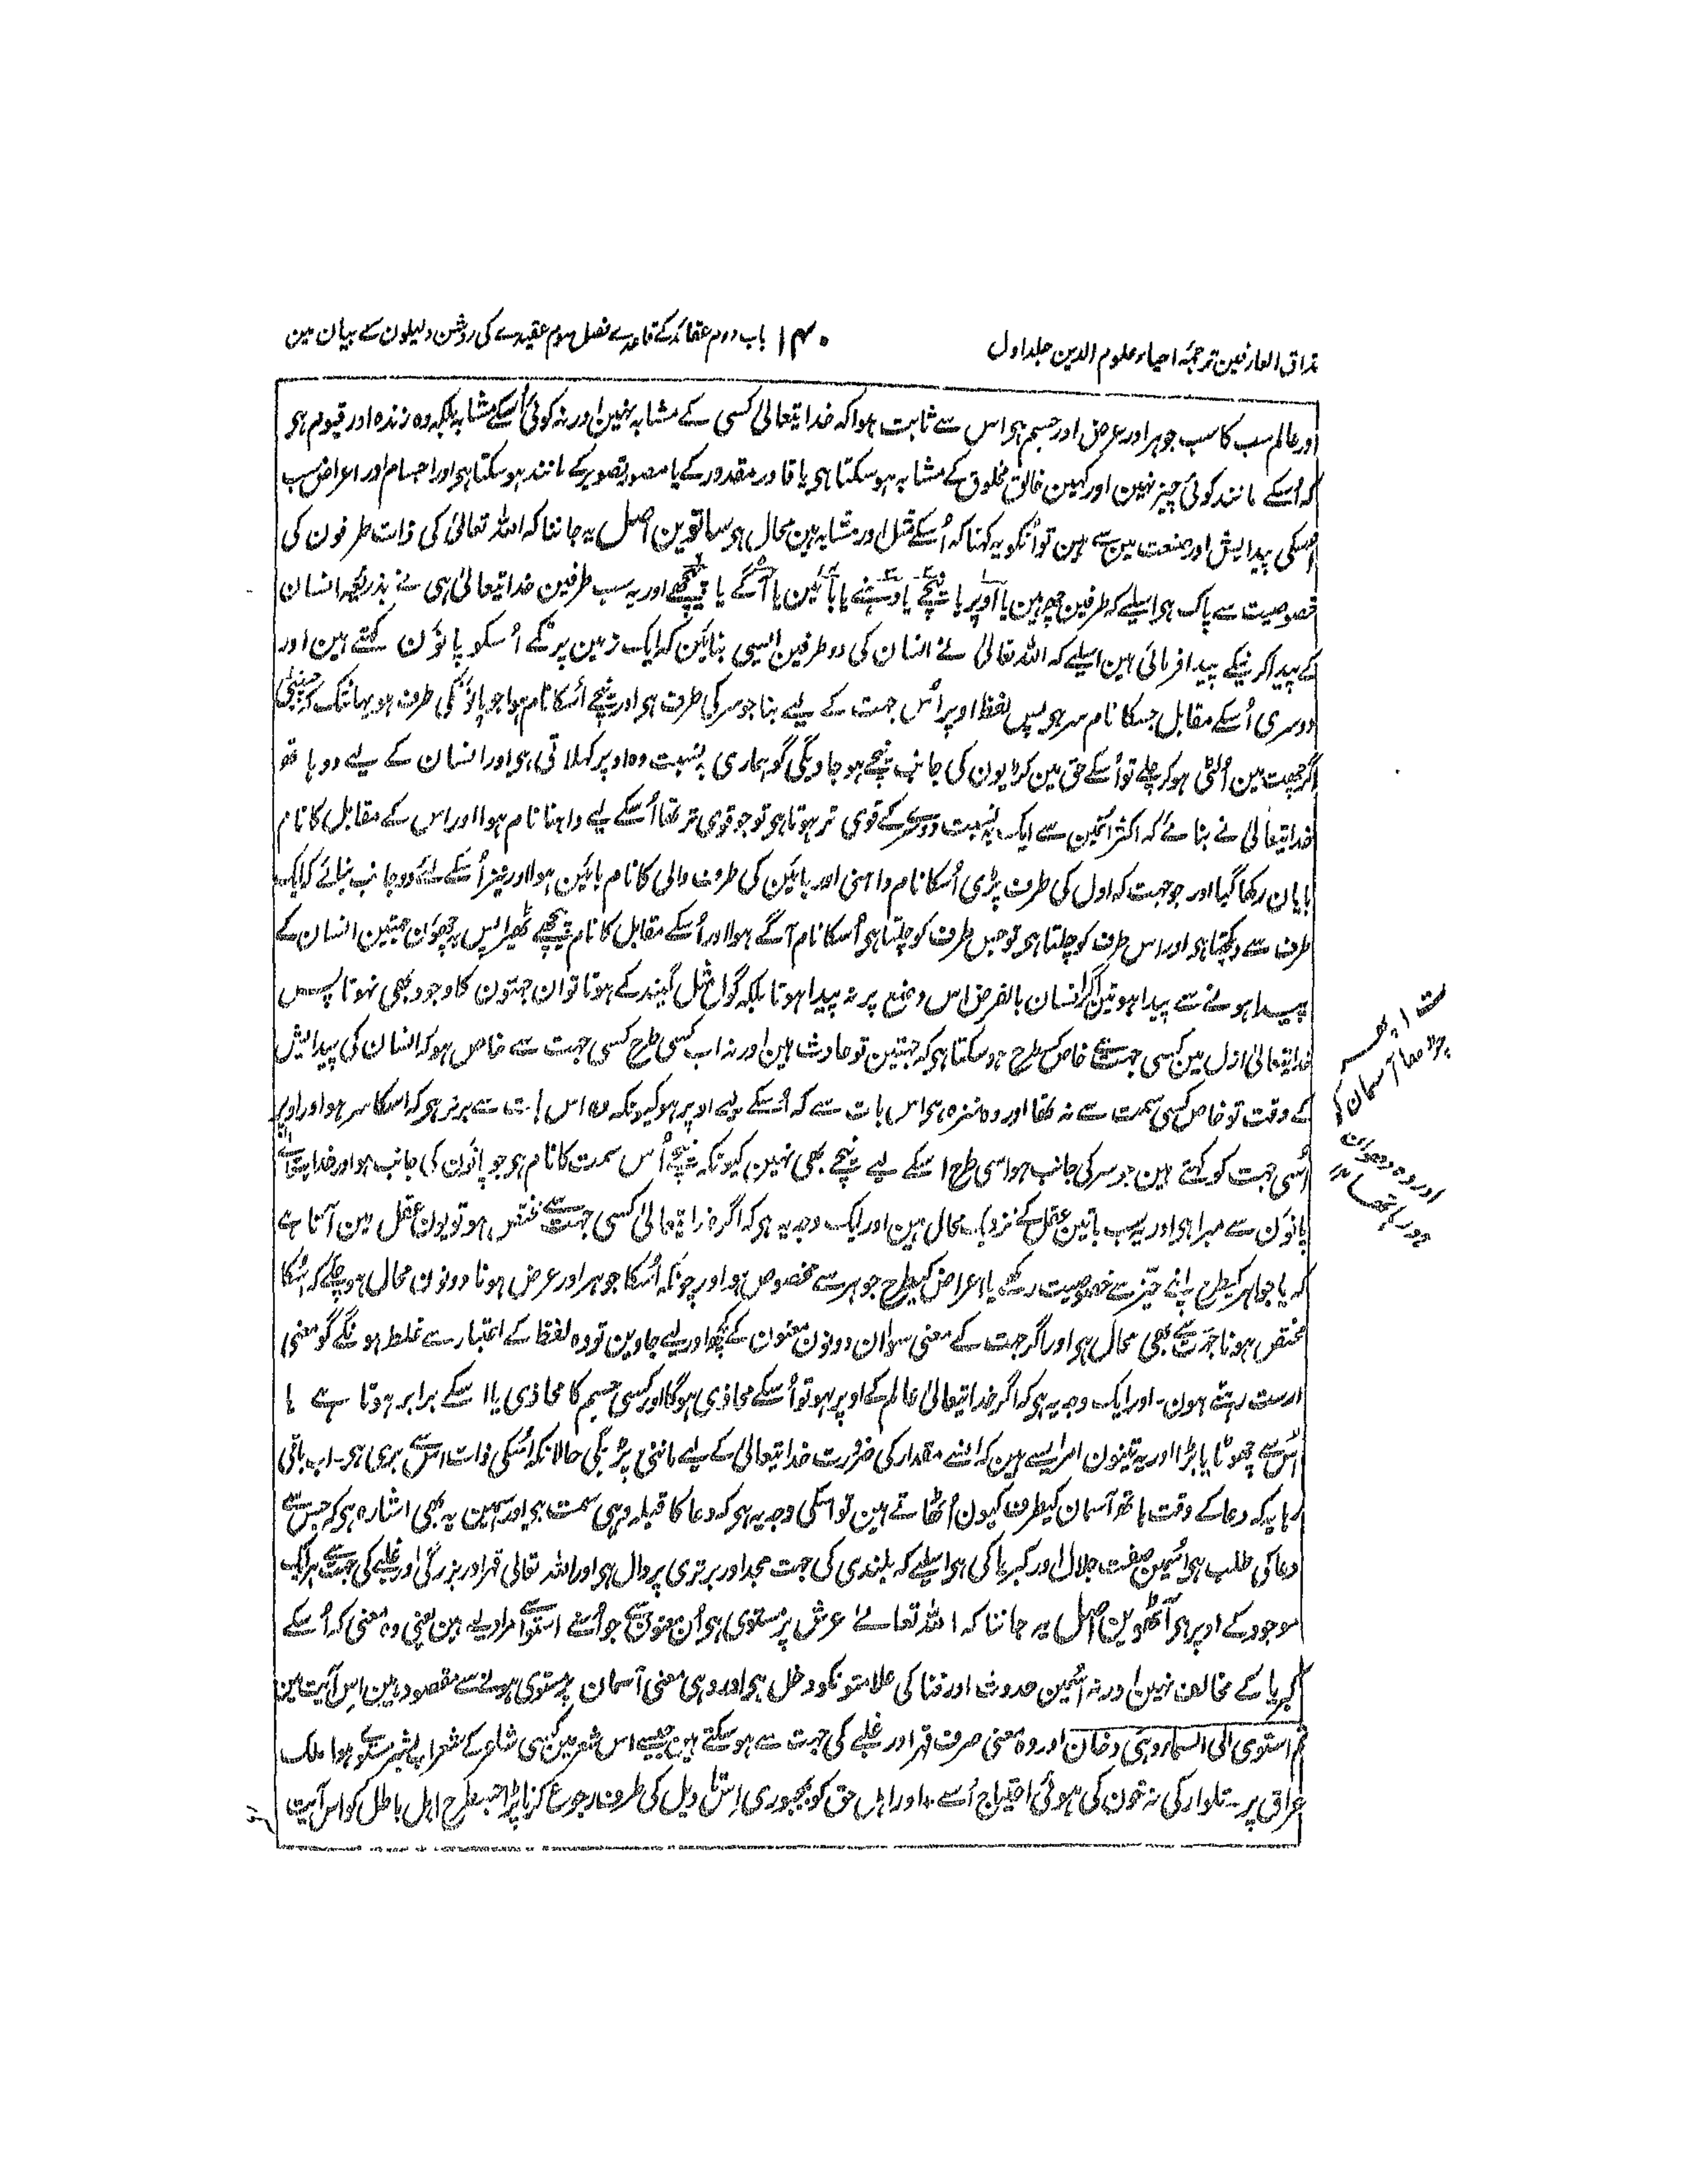 مذاق العارفین ترجمۂ احیاء علوم الدین جلد اول
۱۴۰
باب دوم عقائد کے قاعدے فصل سوم عقیدے کی روشن دلیلون کے بیان مین
اور عالم سب کا سب جوہر اور عرض اور جسم ہی اس سے ثابت ہوا کہ خدایتعالیٰ کسی کے مشابہ نہین اور نہ کوئی اُسکے مشابہ بلکہ وہ زندہ اور قیوم ہی
کہ اُسکے مانند کوئی چیز نہین اور کہین خالق مخلوق کے مشابہ ہو سکتا ہی یا قادر مقدور کے یا مصور تصویر کے مانند ہو سکتا ہی اور اجسام اور اعراض سب
اُسکی پیدایش اور صنعت مین سے ہین تو اُنکو یہ کہنا کہ اُسکے مثل اور مشابہ ہین محال ہی ساتوین اصل یہ جاننا کہ اللہ تعالیٰ کی ذات طرفون کی
خصوصیت سے پاک ہی اسلیے کہ طرفین چھ ہین یا اوپر یا نیچے یا دہنے یا بائین یا آگے یا پیچھے اور یہ سب طرفین خدایتعالیٰ ہی نے بذریعہ انسان
کے پیدا کرنیکے پیدا فرمائی ہین اسلیے کہ اللہ تعالیٰ نے انسان کی دو طرفین ایسی بنائین کہ ایک زمین پر ٹکے اُسکو پانوَن کہتے ہین اور
دوسری اُسکے مقابل جسکا نام سر ہی پس لفظ اوپر اُس جہت کے لیے بنا جو سر کی طرف ہی اور نیچے اُسکا نام ہوا جو پانوَن کی طرف ہو یہانتک کہ چیونٹی
اگر چھت مین اُلٹی ہو کر چلے تو اُسکے حق مین کڑیون کی جانب نیچے ہو جاویگی گو ہماری بہ نسبت وہ اوپر کہلاتی ہی اور انسان کے لیے دو ہاتھ
خدایتعالیٰ نے بنائے کہ اکثر اُنمین سے ایک بہ نسبت دوسرے کے قوی تر ہوتا ہی تو جو قوی تر تھا اُسکے لیے داہنا نام ہوا اور اس کے مقابل کا نام
بایان رکھا گیا اور جو جہت کہ اول کی طرف پڑی اُسکا نام داہنی اور بائین کی طرف والی کا نام بائین ہوا اور نیز اُسکے لئے دو جانب بنائے کہ ایک
طرف سے دیکھتا ہی اور اس طرف کو چلتا ہی تو جس طرف کو چلتا ہی اُسکا نام آگے ہوا اور اُسکے مقابل کا نام پیچھے ٹھیرا پس یہ چھون جہتین انسان کے
پیدا ہونے سے پیدا ہوئین اگر انسان بالفرض اس وضع پر نہ پیدا ہوتا بلکہ گول مثل گیند کے ہوتا تو ان جہتون کا وجود بھی نہوتا پس
خدایتعالیٰ ازل مین کسی جہت سے خاص کسطرح ہو سکتا ہی کہ جہتین تو حادث ہین اور نہ اب کسی طرح کسی جہت سے خاص ہو کہ انسان کی پیدایش
کے وقت تو خاص کسی سمت سے نہ تھا اور وہ منزہ ہی اس بات سے کہ اُسکے لیے اوپر ہو کیونکہ وہ اس بات سے برتر ہی کہ اسکا سر ہو اور اوپر
اُسی جہت کو کہتے ہین جو سر کی جانب ہو اسی طرح اسکے لیے نیچے بھی نہین کیونکہ نیچے اُس سمت کا نام ہی جو پانوَن کی جانب ہو اور خدایتعالیٰ
پانوَن سے مبرا ہی اور یہ سب باتین عقل کے نزدیک محال ہین اور ایک وجہ یہ ہی کہ اگر خدایتعالیٰ کسی جہت سے مختص ہو تو یون عقل مین آتا ہے
کہ یا جواہر کیطرح اپنے حیز سے خصوصیت رکھے یا اعراض کیطرح جوہر سے مخصوص ہو اور چونکہ اُسکا جوہر اور عرض ہونا دونون محال ہو چکے کہ اُسکا
مختص ہونا جہت سے بھی محال ہی اور اگر جہت کے معنی سوا ان دونون معنون کے کچھ اور لیے جاوین تو وہ لفظ کے اعتبار سے غلط ہونگے گو معنی
درست رہتے ہون۔ اور ایک وجہ یہ ہی کہ اگر خدایتعالیٰ عالم کے اوپر ہو تو اُسکے محاذی ہوگا اور کسی جسم کا محاذی یا اسکے برابر ہوتا ہے یا
اُس سے چھوٹا یا بڑا اور یہ تینون امر ایسے ہین کہ انسے مقدار کی ضرورت خدایتعالیٰ کے لیے ماننی پڑیگی حالانکہ اُسکی ذات اس سے بری ہی۔ اب باقی
رہا یہ کہ دعا کے وقت ہاتھ آسمان کیطرف کیون اُٹھاتے ہین تو اسکی وجہ یہ ہی کہ دعا کا قبلہ وہی سمت ہی اور اسمین یہ بھی اشارہ ہی کہ جس سے
دعا کی طلب ہی اسمین صفت جلال اور کبریا کی ہی اسلیے کہ بلندی کی جہت مجد اور برتری پر دال ہی اور اللہ تعالی قہر اور بزرگی اور غلبے کی جہت سے ہر ایک
موجود کے اوپر ہی آٹھوین اصل یہ جاننا کہ اللہ تعالےٰ عرش پر مستوی ہی اُن معنون سے جو اُسنے استوا سے مراد لیے ہین یعنی وہ معنی کہ اُسکے
کبریا کے مخالف نہین اور نہ اُسمین حدوث اور فنا کی علامتونکو دخل ہی اور وہی معنی آسمان پر مستوی ہونے سے مقصود ہین اس آیت مین
ثم استوی الی السماء وہی دخان اور وہ معنی صرف قہر اور غلبے کی جہت سے ہو سکتے ہین جیسے اس شعر مین کسی شاعر کے شعر ہوا ملک
عراق پر۔ تلوار کی نہ خون کی ہوئی احتیاج اُسے۔ اور اہل حق کو بمجبوری اس تاویل کی طرف رجوع کرنا پڑا جسطرح اہل باطل کو اس آیت
چڑھا آسمان کو
اور وہ دھوان
ہو رہا تھا